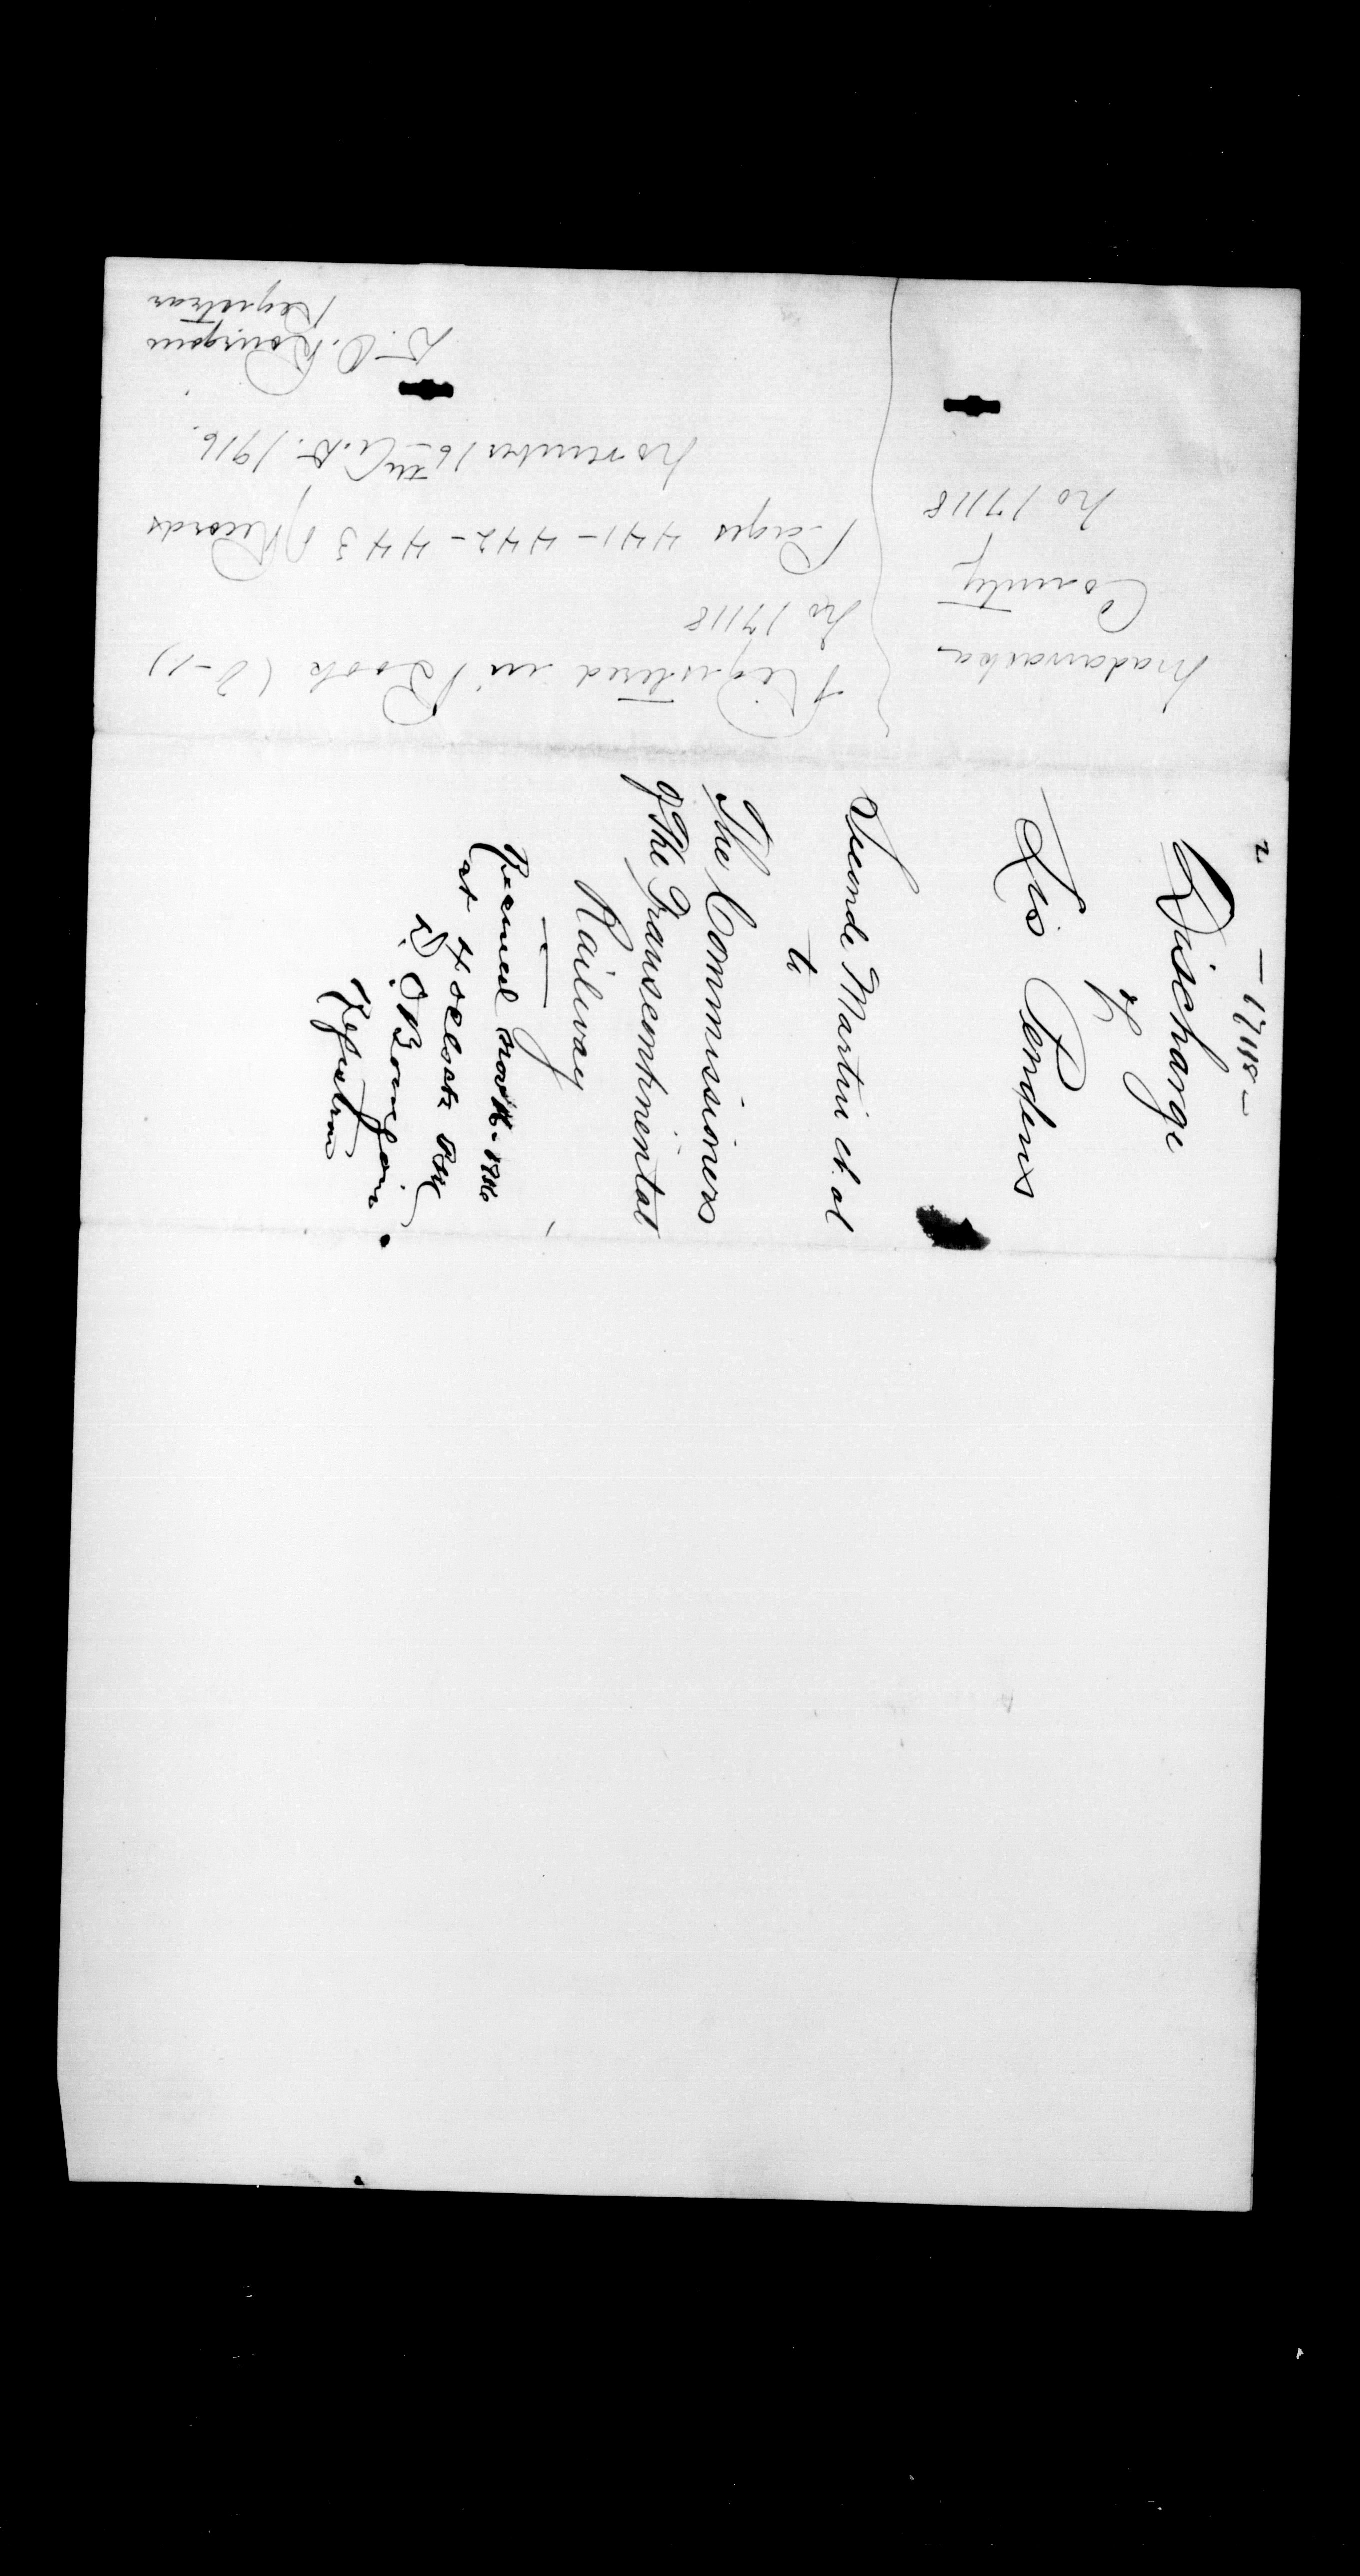 — 17118 —
Discharge
of
Lis Pendens
Seconde Martin et al
to
The Commissioners
of The Transcontinental
Railway
Received Nov 16 - 1916
at 4 o'clock PM
D. O Bourgoin
Registrar
Madawaska
County
No 17118
Registered in Book (O-1)
No 17118
Pages 441 - 442 - 443 of Records
November 16th A.D. 1916.
D. O. Bourgoin
Registrar